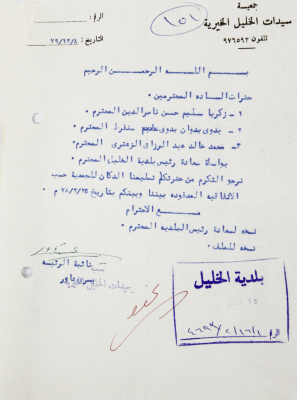 جمعية
سيدات الخليل الخيرية
تلفون ٩٧٦٥٩٢
الرقم :
١٥١
التاريخ : ٧٩/١٢/٨
بسم اللــه الرحمــن الرحيم
حضرات الساده المحترمين ٠
١ - زكريا سليم حسن ناصر الدين المحترم ٠
٢ - بدوي بدوان بدوي سنقرط المحترم ٠
٣- محمد خالد عبد الرزاق الزعتري المحترم ٠
بواسطة سعادة رئيس بلدية الخليل المحترم ٠
نرجو التكرم من حضرتكم تسليمنا الدكان للجمعية حسب
الاتفاقيه المعقوده بيننا وبينكم بتاريخ ٧٨/٢/٢٥ م ٠
مــع الاحترام
نسخه لسعادة رئيس البلديه المحترم ٠
نسخه للملف ٠
نائبة الرئيسه
يسرى
سيدات الخليل
بلدية الخليل
الرقم